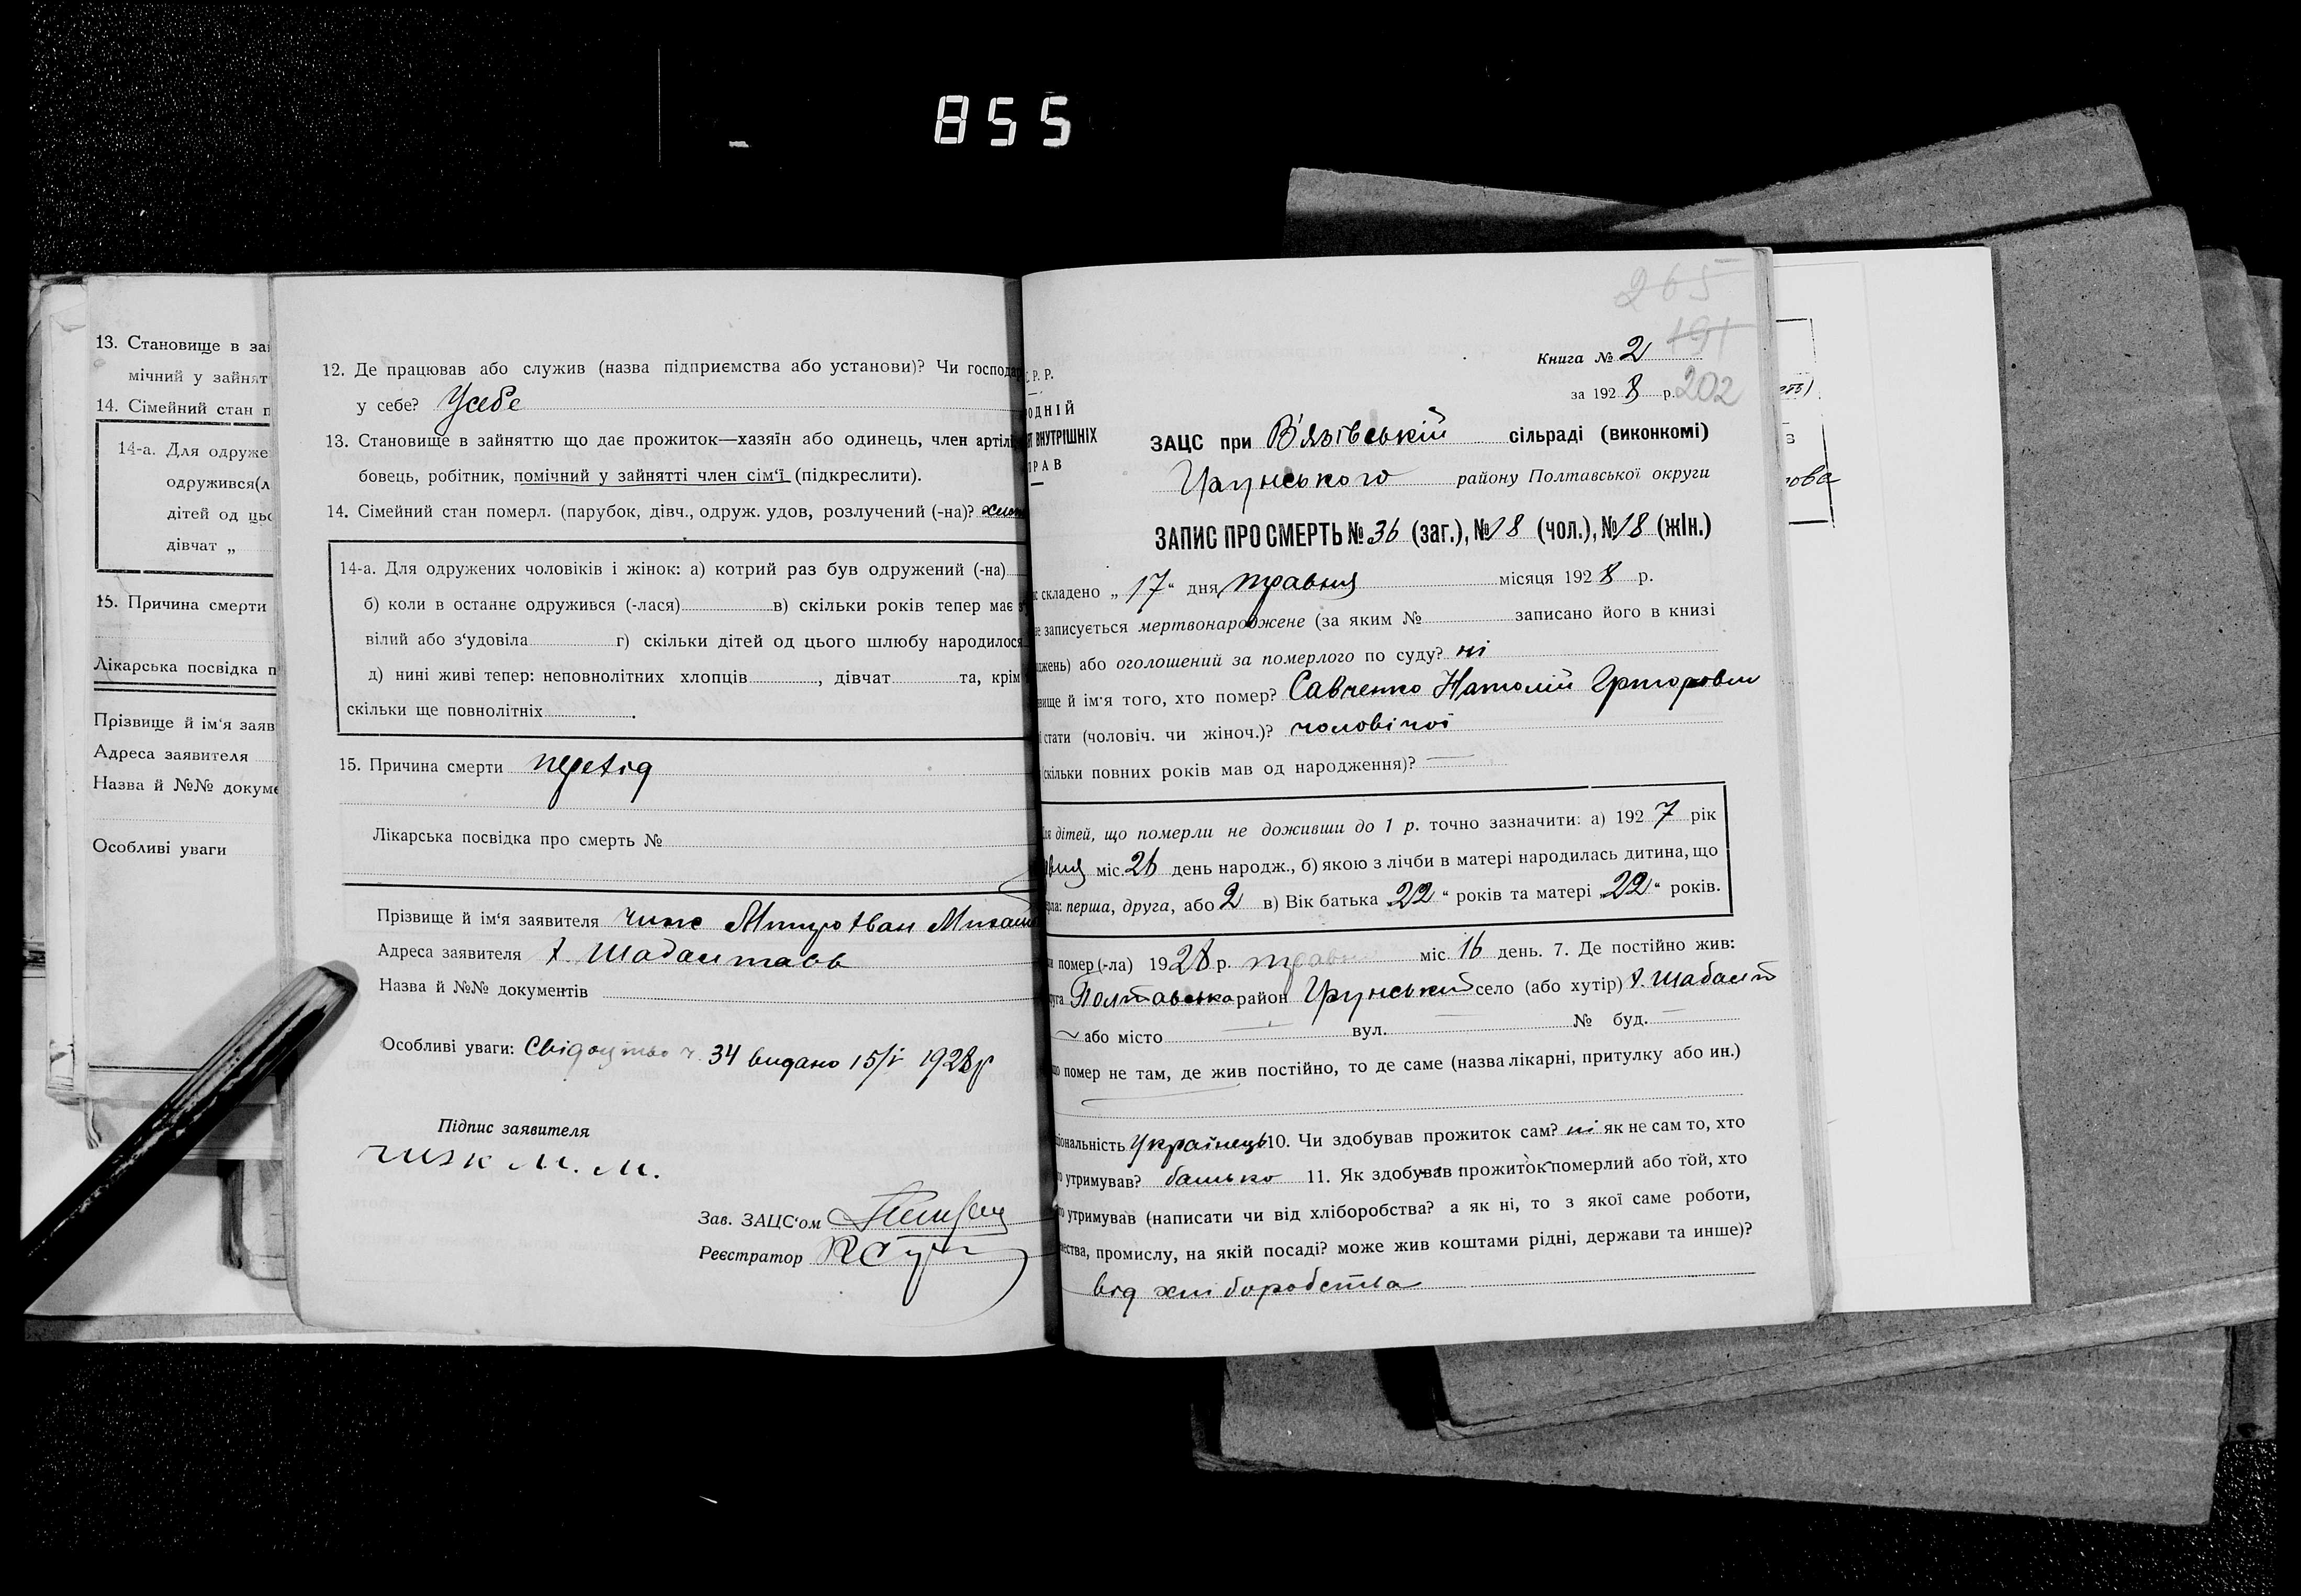 855
13. Становище в за
мічний у зайнят
14. Сімейний стан п
14-а. Для одруже
одружився(л
дітей од цьо
дівчат „
15. Причина смерти
Лікарська посвідка п
Прізвище й ім'я заяв
Адреса заявителя
Назва й №№ докуме
Особливі уваги
12. Де працював або служив (назва підприємства або установи)? Чи господар
у себе? Усебе
13. Становище в зайняттю що дає прожиток—хазяїн або одинець, член артілі
бовець, робітник, помічний у зайнятті член сім'ї (підкреслити).
14. Сімейний стан померл. (парубок, дівч., одруж. удов, розлучений (-на)?
14-а. Для одружених чоловіків і жінок: а) котрий раз був одружений (-на)
б) коли в останнє одружився (-лася) в) скільки років тепер має
вілий або з'удовіла г) скільки дітей од цього шлюбу народилося
д) нині живі тепер: неповнолітних хлопців , дівчат та, крім
скільки ще повнолітніх .
15. Причина смерти
Лікарська посвідка про смерть №
Прізвище й ім'я заявителя Чиж
Адреса заявителя х.
Назва й №№ документів
Особливі уваги: Свідоцтво ч. 34 видано 15/V 1928р
Підпис заявителя
чиж М. М.
Зав. ЗАЦС'ом
Реєстратор
265
191
Книга № 2
за 1928 р. 202
С. Р. Р.
РОДНІЙ
ВНУТРІШНІХ
ПРАВ
ЗАЦС при В'язівській сільраді (виконкомі)
Грунського району Полтавської округи
ЗАПИС ПРО СМЕРТЬ № 36 (заг.), № 18 (чол.), № 18 (жін.)
складено „17" дня травня місяця 1928 р.
записується мертвонароджене (за яким № записано його в книзі
джень) або оголошений за померлого по суду? ні
вище й ім'я того, хто помер? Савченко Натолій Григорович
стати (чоловіч. чи жіноч.)? чоловічої
(скільки повних років мав од народження)? —
дітей, що померли не доживши до 1 р. точно зазначити: а) 1927 рік
міс. 26 день народж., б) якою з лічби в матері народилась дитина, що
рла: перша, друга, або 2 в) Вік батька „22" років та матері „22" років.
помер (-ла) 1928 р. травня міс. 16 день. 7. Де постійно жив:
руга Полтавська район Грунський село (або хутір)
або місто — вул. — № буд. —
помер не там, де жив постійно, то де саме (назва лікарні, притулку або ин.)
ціональність Українець 10. Чи здобував прожиток сам? ні як не сам то, хто
утримував? батько 11. Як здобував прожиток померлий або той, хто
утримував (написати чи від хліборобства? а як ні, то з якої саме роботи,
ества, промислу, на якій посаді? може жив коштами рідні, держави та инше)?
від хліборобства